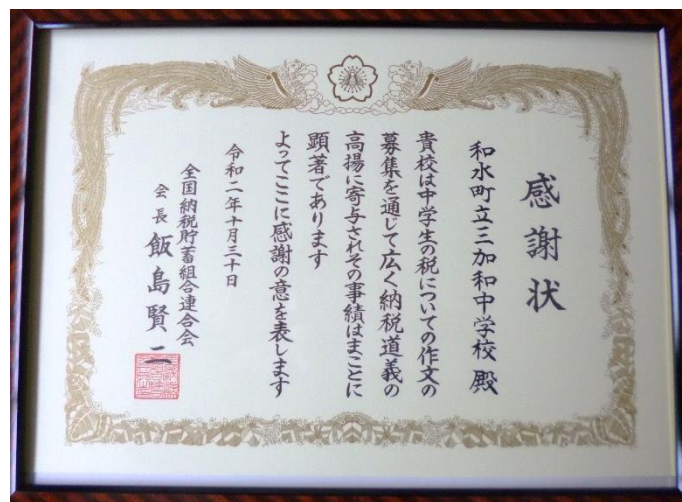 感謝状
和水町立三加和中学校 殿
貴校は中学生の税についての作文の
募集を通じて広く納税道義の
高揚に寄与されその事績はまことに
顕著であります
よってここに感謝の意を表します
令和二年十月三十日
全国納税貯蓄組合連合会
会長 飯島賢二